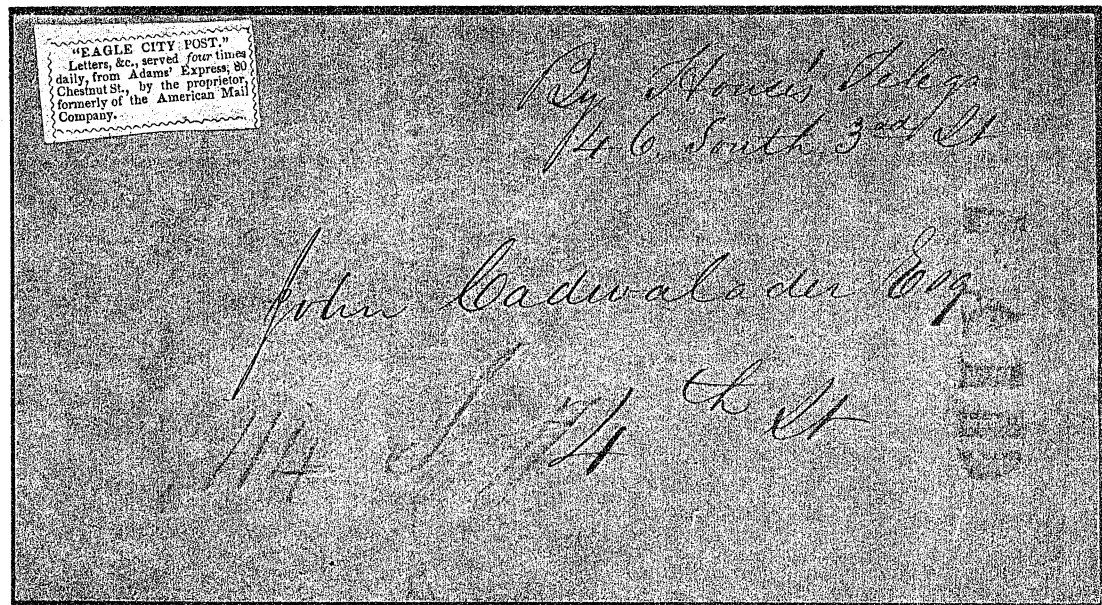 "EAGLE CITY POST."
Letters, &c., served four times
daily, from Adams' Express, 80
Chestnut St., by the proprietor,
formerly of the American Mail
Company.
By House's
46 South 3rd St
John Cadwalader Esq
S 4th St